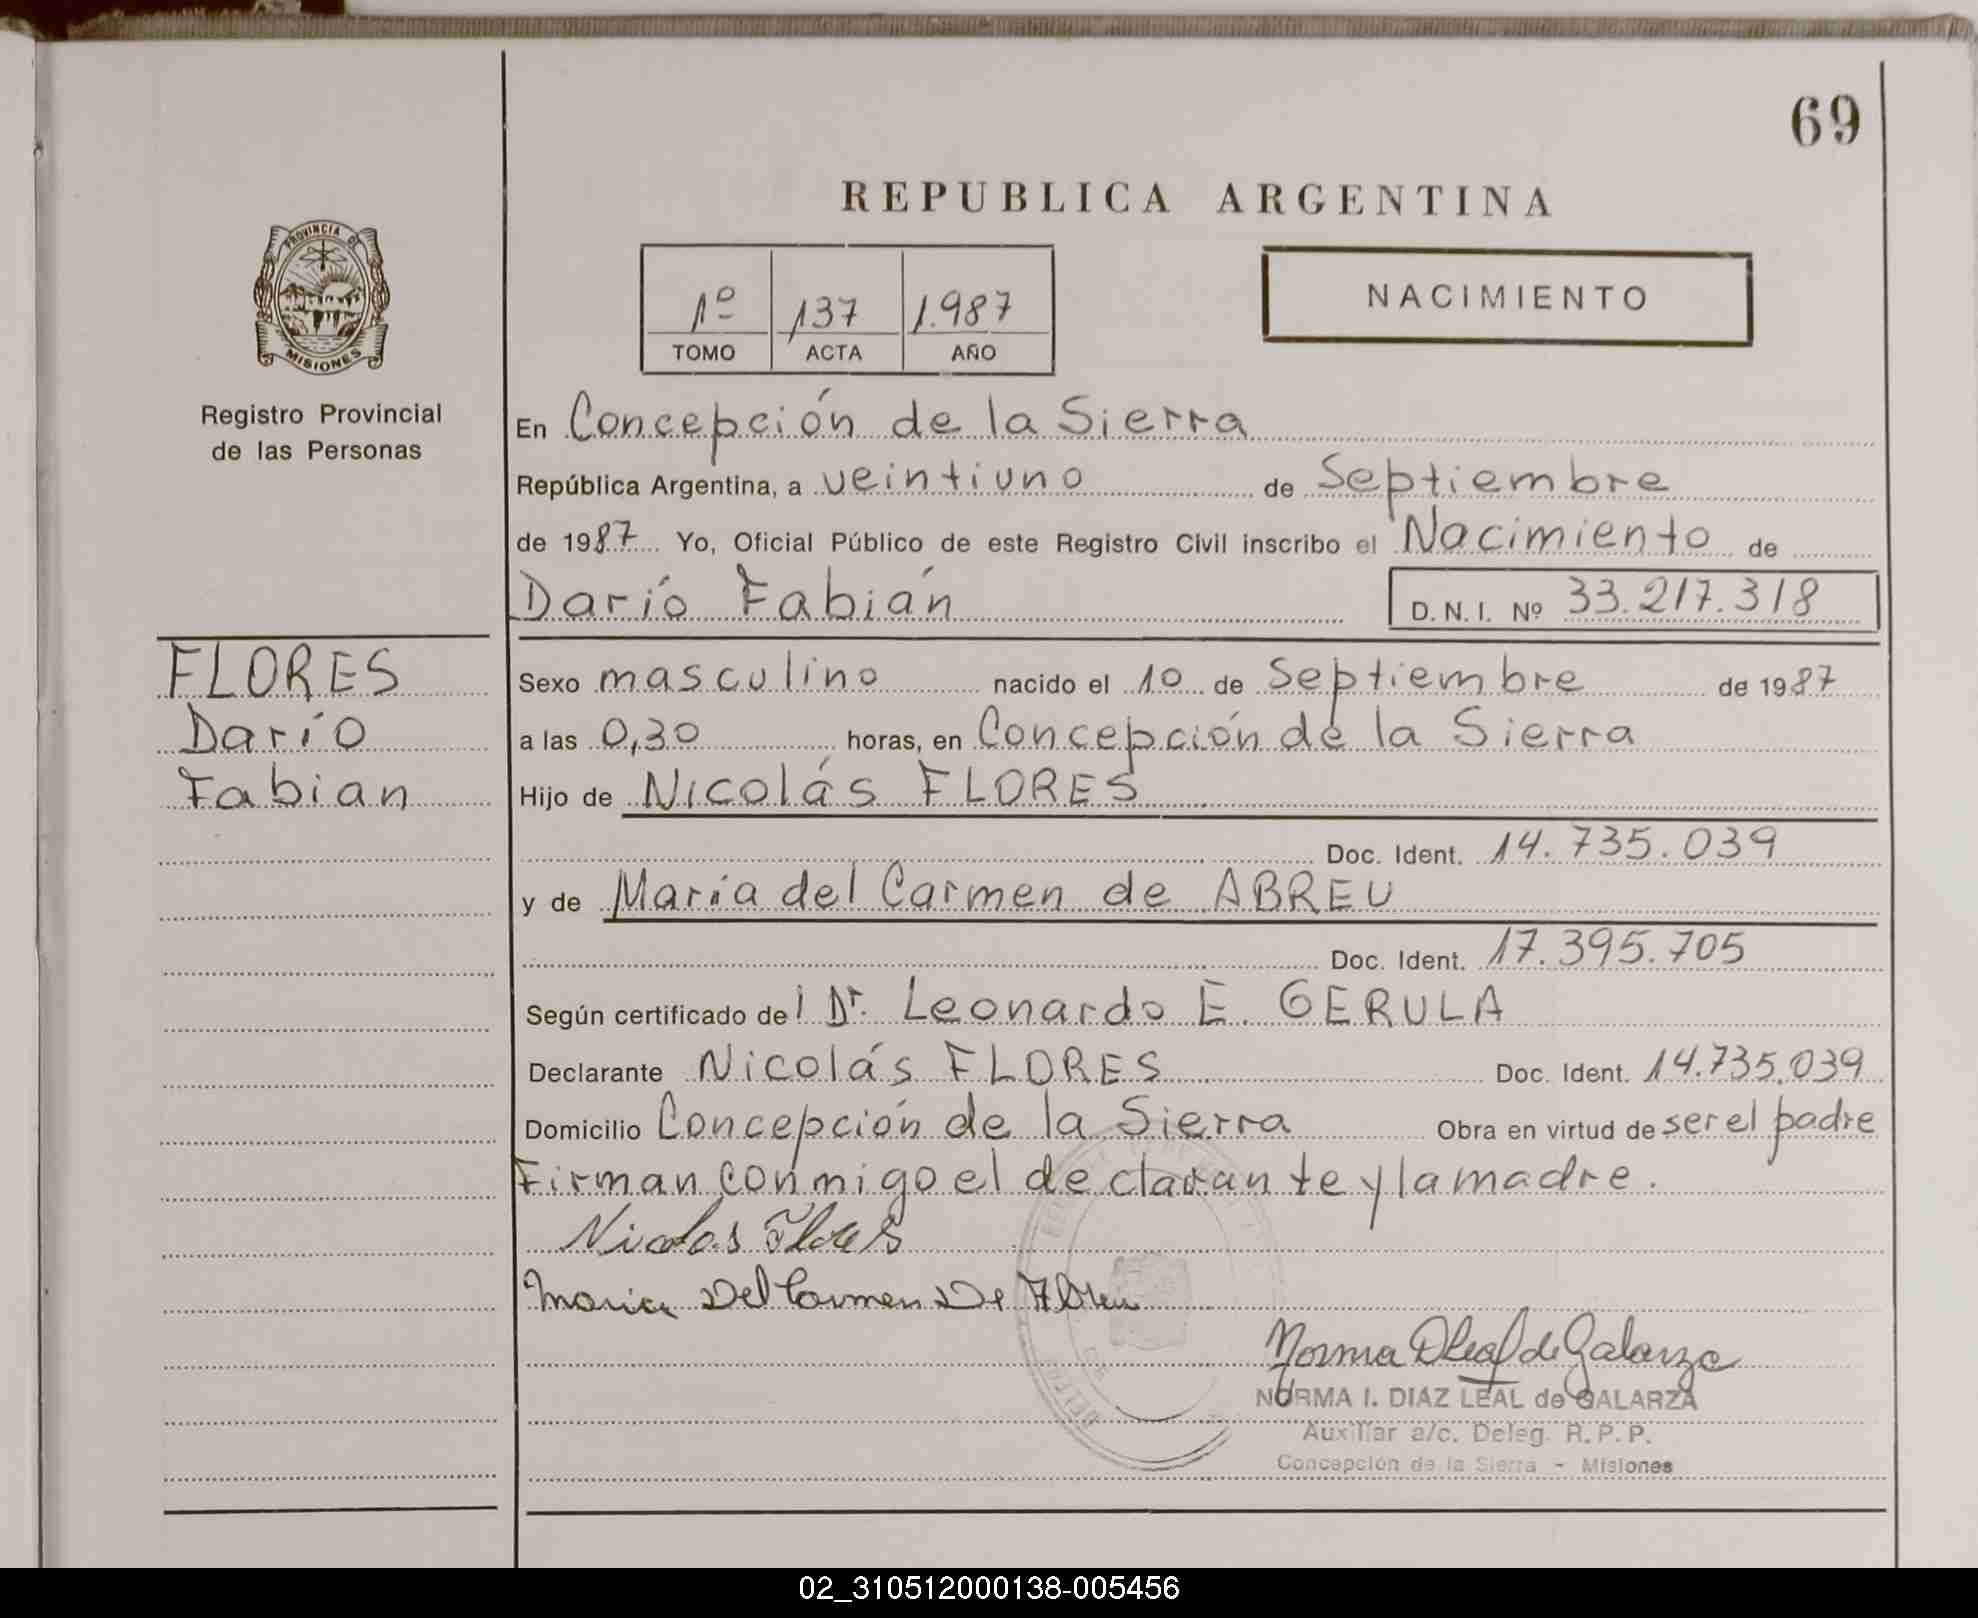 69
REPUBLICA ARGENTINA
PROVINCIA DE
MISIONES
Registro Provincial
de las Personas
1º 137 1.987
TOMO ACTA AÑO
NACIMIENTO
En Concepción de la Sierra
República Argentina, a veintiuno de Septiembre
de 1987 Yo, Oficial Público de este Registro Civil inscribo el Nacimiento de
Darío Fabián D.N.I. Nº 33.217.318
FLORES
Darío
Fabian
Sexo masculino nacido el 10 de Septiembre de 1987
a las 0,30 horas, en Concepción de la Sierra
Hijo de Nicolás FLORES
Doc. Ident. 14.735.039
y de María del Carmen de ABREU
Doc. Ident. 17.395.705
Según certificado del Dr. Leonardo E. GERULA
Declarante Nicolás FLORES Doc. Ident. 14.735.039
Domicilio Concepción de la Sierra Obra en virtud de ser el padre
Firman conmigo el declarante y la madre.
Nicolas Flores
Maria Del Carmen De Abreu
Norma DLeal de Galarza
NORMA I. DIAZ LEAL de GALARZA
Auxiliar a/c. Deleg. R.P.P.
Concepción de la Sierra - Misiones
02_310512000138-005456